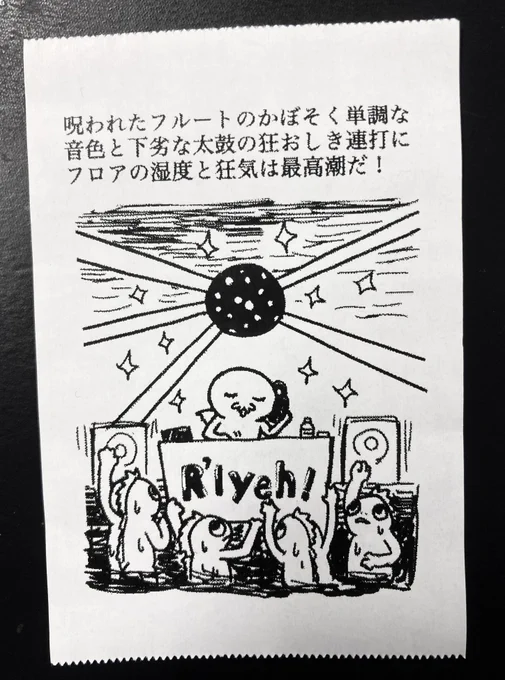 呪われたフルートのかぼそく単調な
音色と下劣な太鼓の狂おしき連打に
フロアの湿度と狂気は最高潮だ！
R'lyeh!